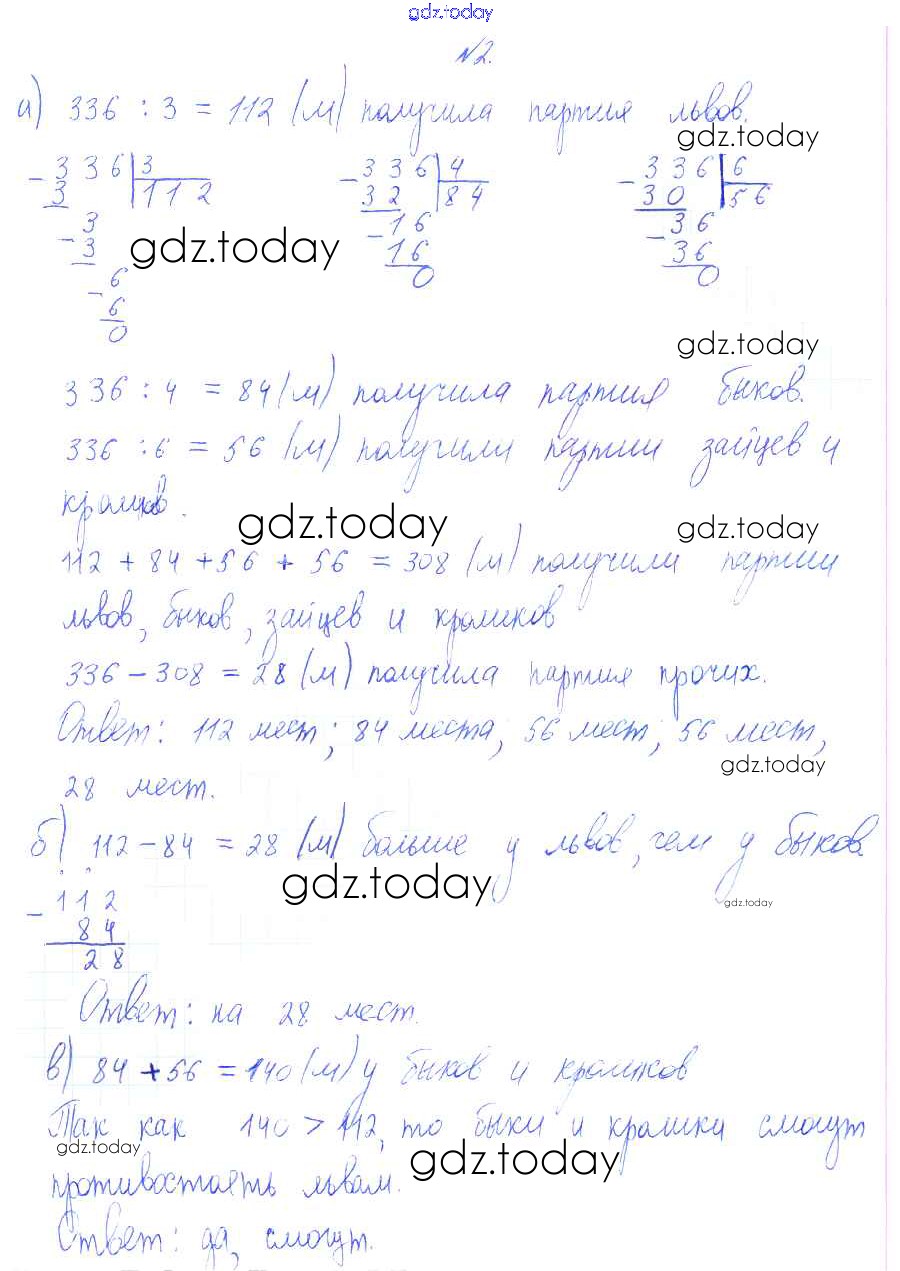 gdz.today
№2.
а) 336 : 3 = 112 (м) получила партия львов.
gdz.today
- 336 | 3 - 336 | 4 - 336 | 6
3 | 112 32 | 84 30 | 56
- 3 - 16 - 36
3 16 36
gdz.today
- 6 0 0
6
0
gdz.today
336 : 4 = 84 (м) получила партия быков.
336 : 6 = 56 (м) получили партии зайцев и
кроликов.
gdz.today gdz.today
112 + 84 + 56 + 56 = 308 (м) получили партии
львов, быков, зайцев и кроликов
336 - 308 = 28 (м) получила партия прочих.
Ответ: 112 мест; 84 места; 56 мест; 56 мест,
gdz.today
28 мест.
б) 112 - 84 = 28 (м) больше у львов, чем у быков.
gdz.today
- 112
gdz.today
84
28
Ответ: на 28 мест.
в) 84 + 56 = 140 (м) у быков и кроликов
Так как 140 > 112, то быки и кролики смогут
gdz.today gdz.today
противостоять львам.
Ответ: да, смогут.